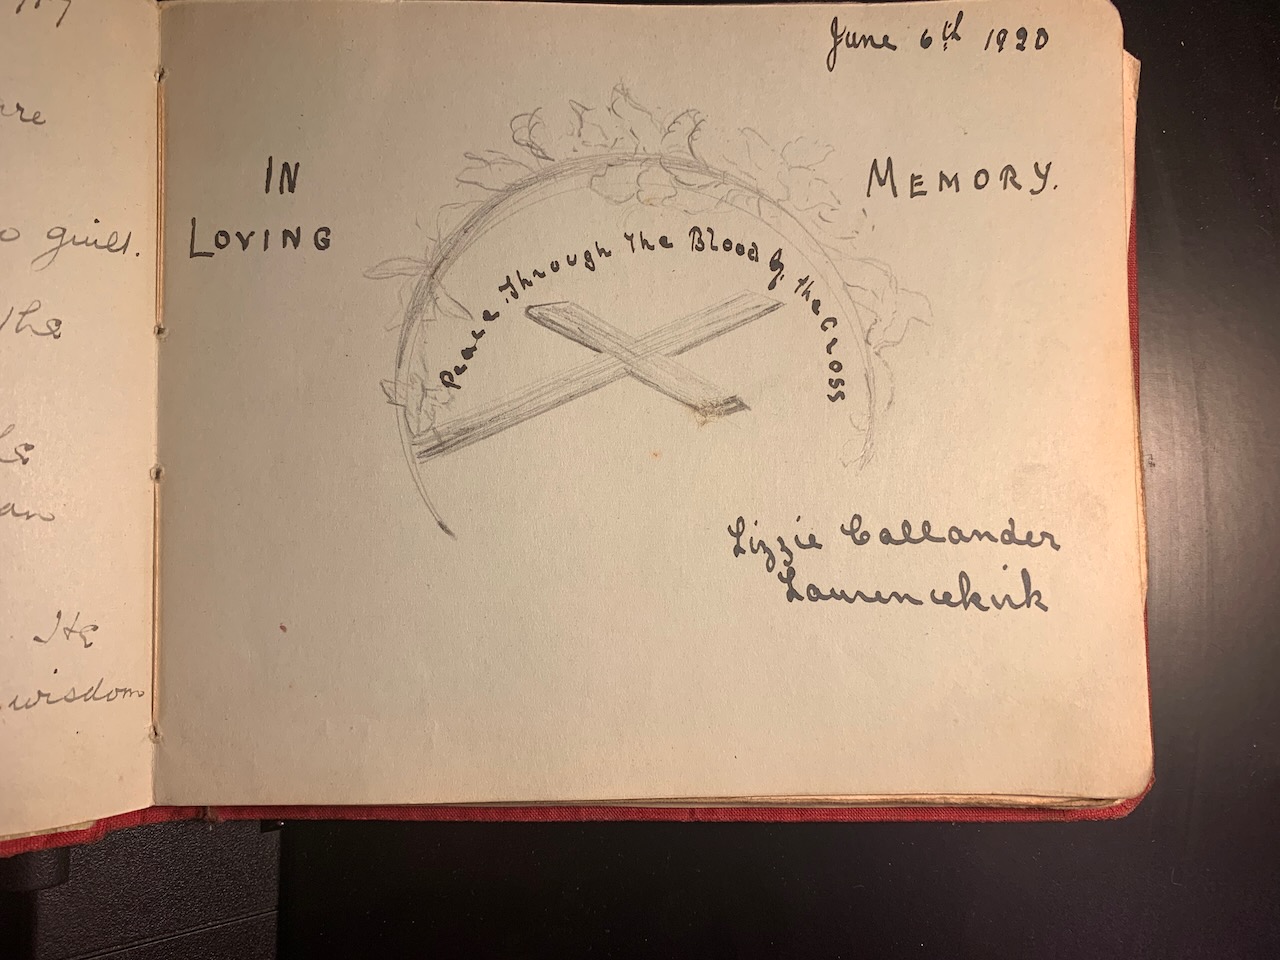 are
o guies.
the
an
He
wisdom
June 6th 1920
IN
LOVING
MEMORY.
Peace Through The Blood of the Cross
Lizzie Callander
Laurencekirk